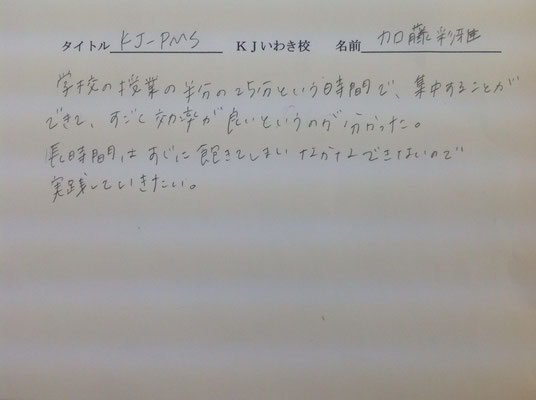 タイトル KJ-PMS KJいわき校 名前 加藤彩雅
学校の授業の半分の25分という時間で、集中することが
できて、すごく効率が良いというのが分かった。
長時間はすぐに飽きてしまいなかなかできないので
実践していきたい。